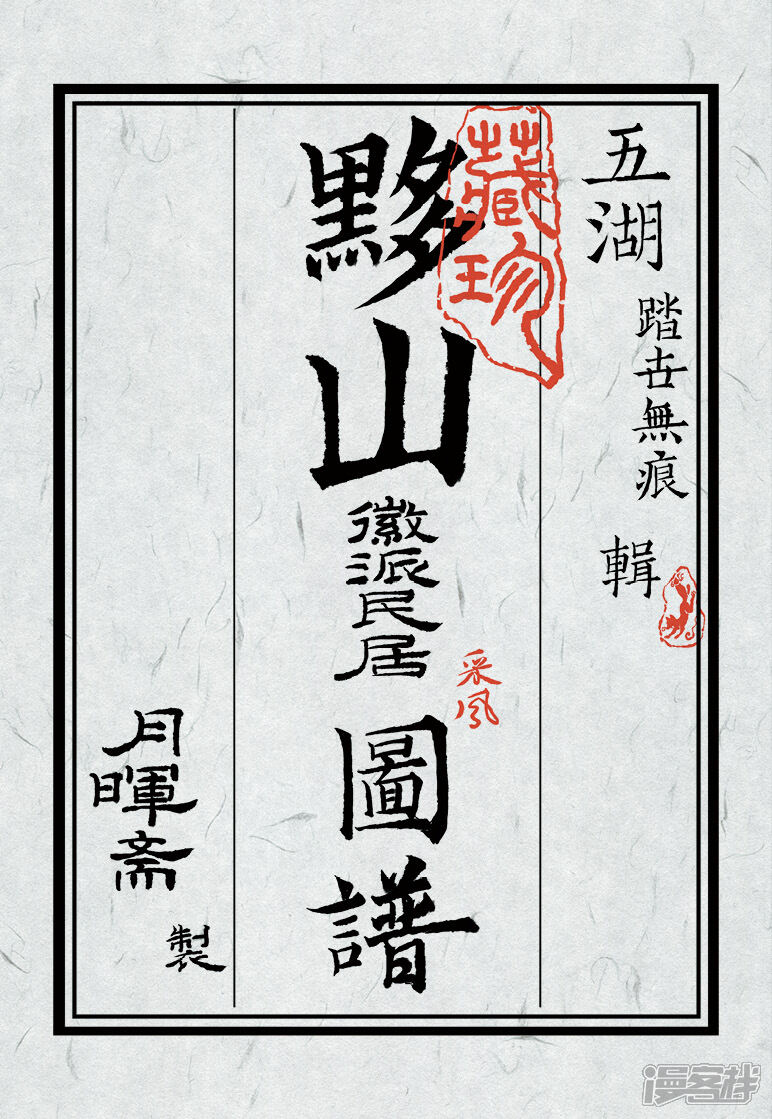 五湖 踏世無痕 輯
藏珍
黟山 徽派民居 圖譜
采風
月暉斎 製
漫客栈